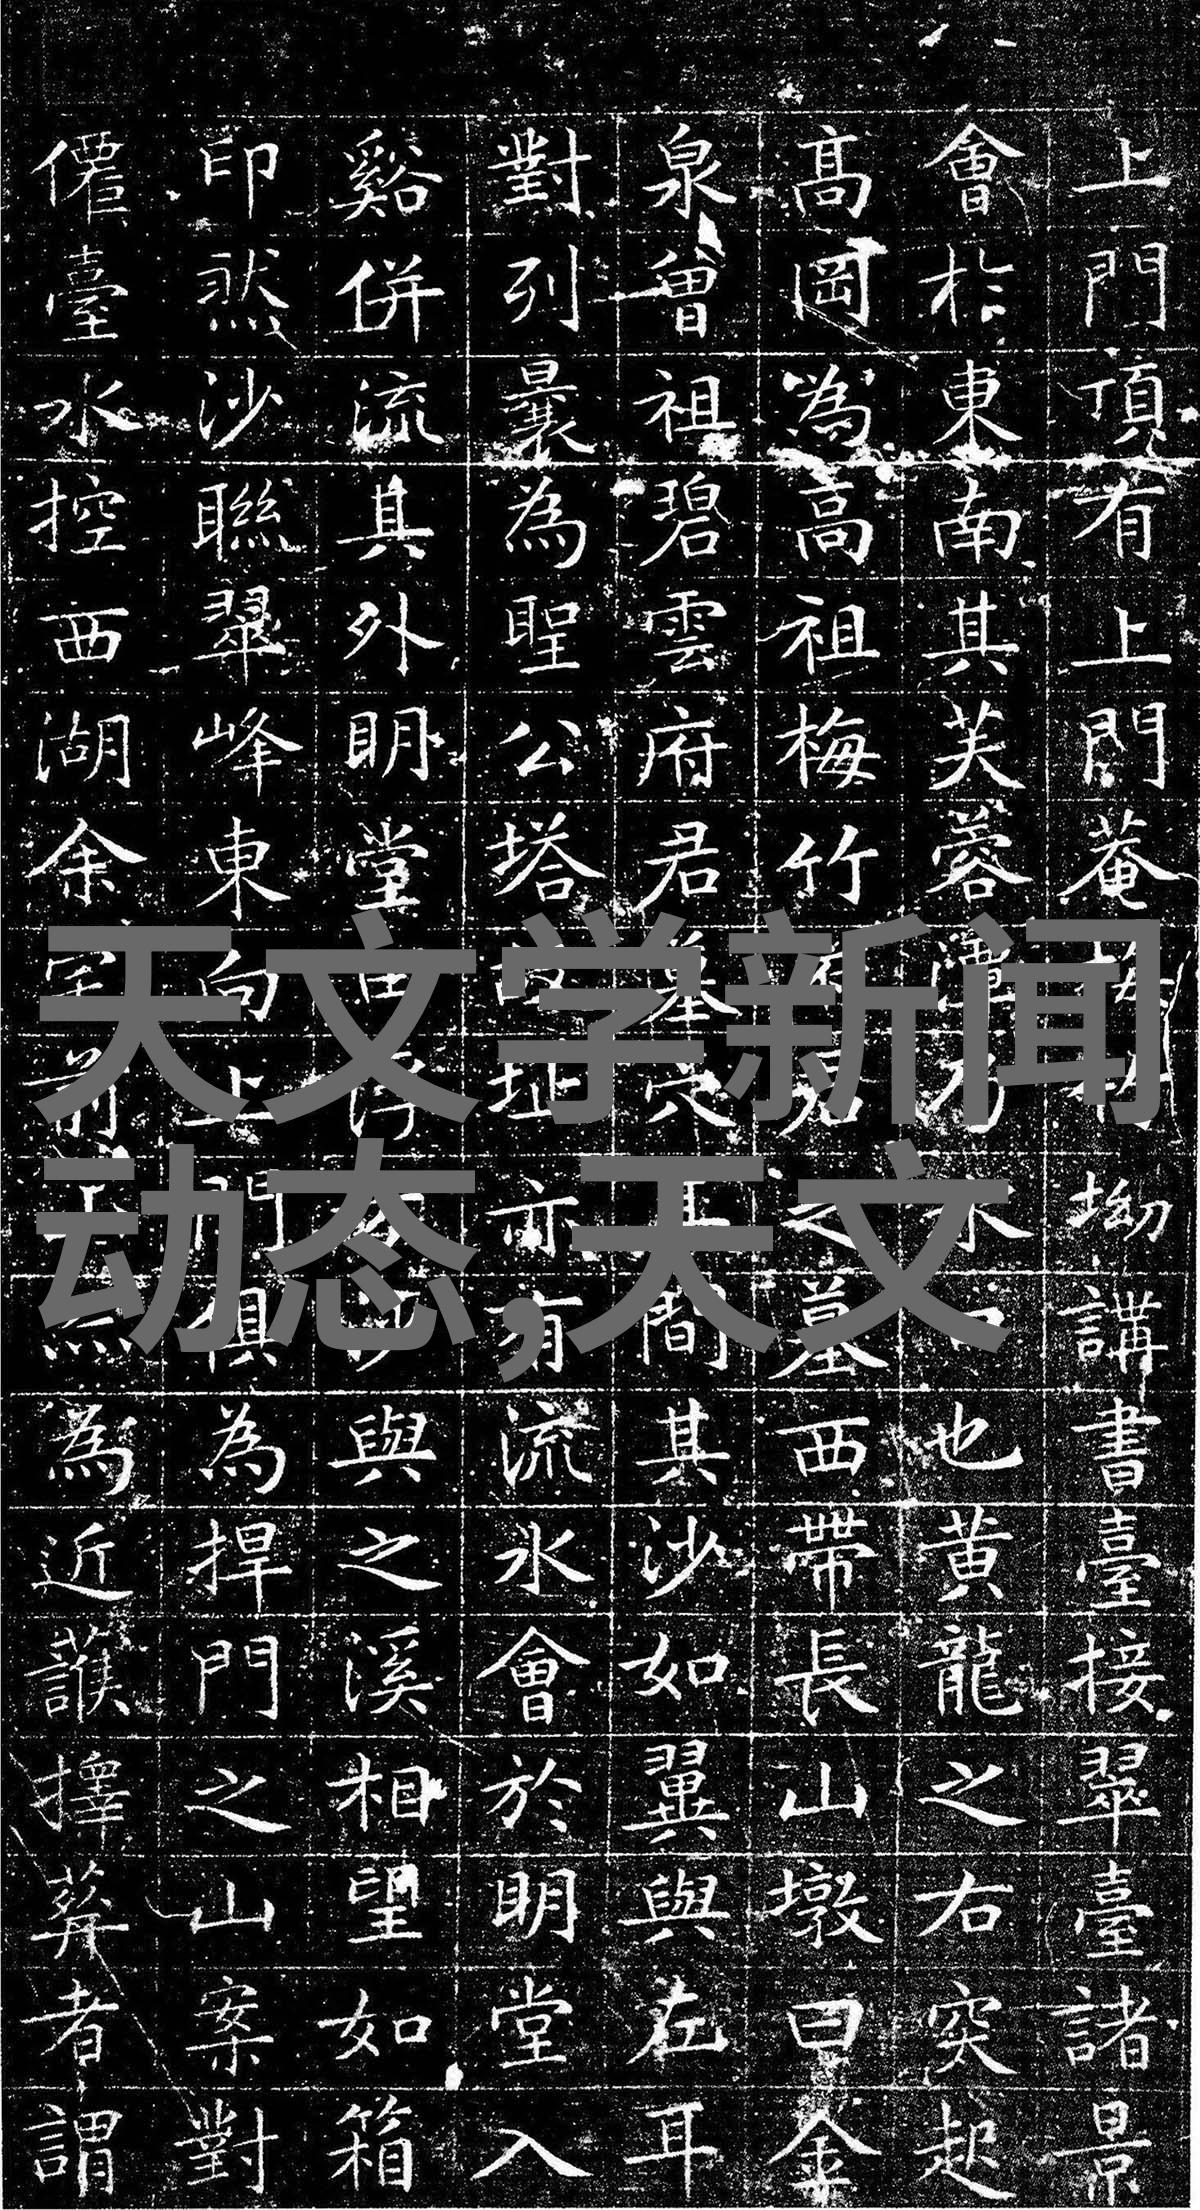 上門頂有上門菴梅竹坳講書臺接翠臺諸景
會於東南其芙蓉水口也黃龍之右突起
高岡為高祖梅竹君之墓西帶長山墩曰金
泉曾祖碧雲府君墓穴其間其沙如翼與左耳
對列曩為聖公塔故址亦有流水會於明堂入
谿併流其外明堂田浮沙與之溪相望如箱
印然沙聯翠峰東向上門俱為捍門之山案對
僊臺水控西湖余家前為近護擇葬者謂
天文学新闻
动态,天文